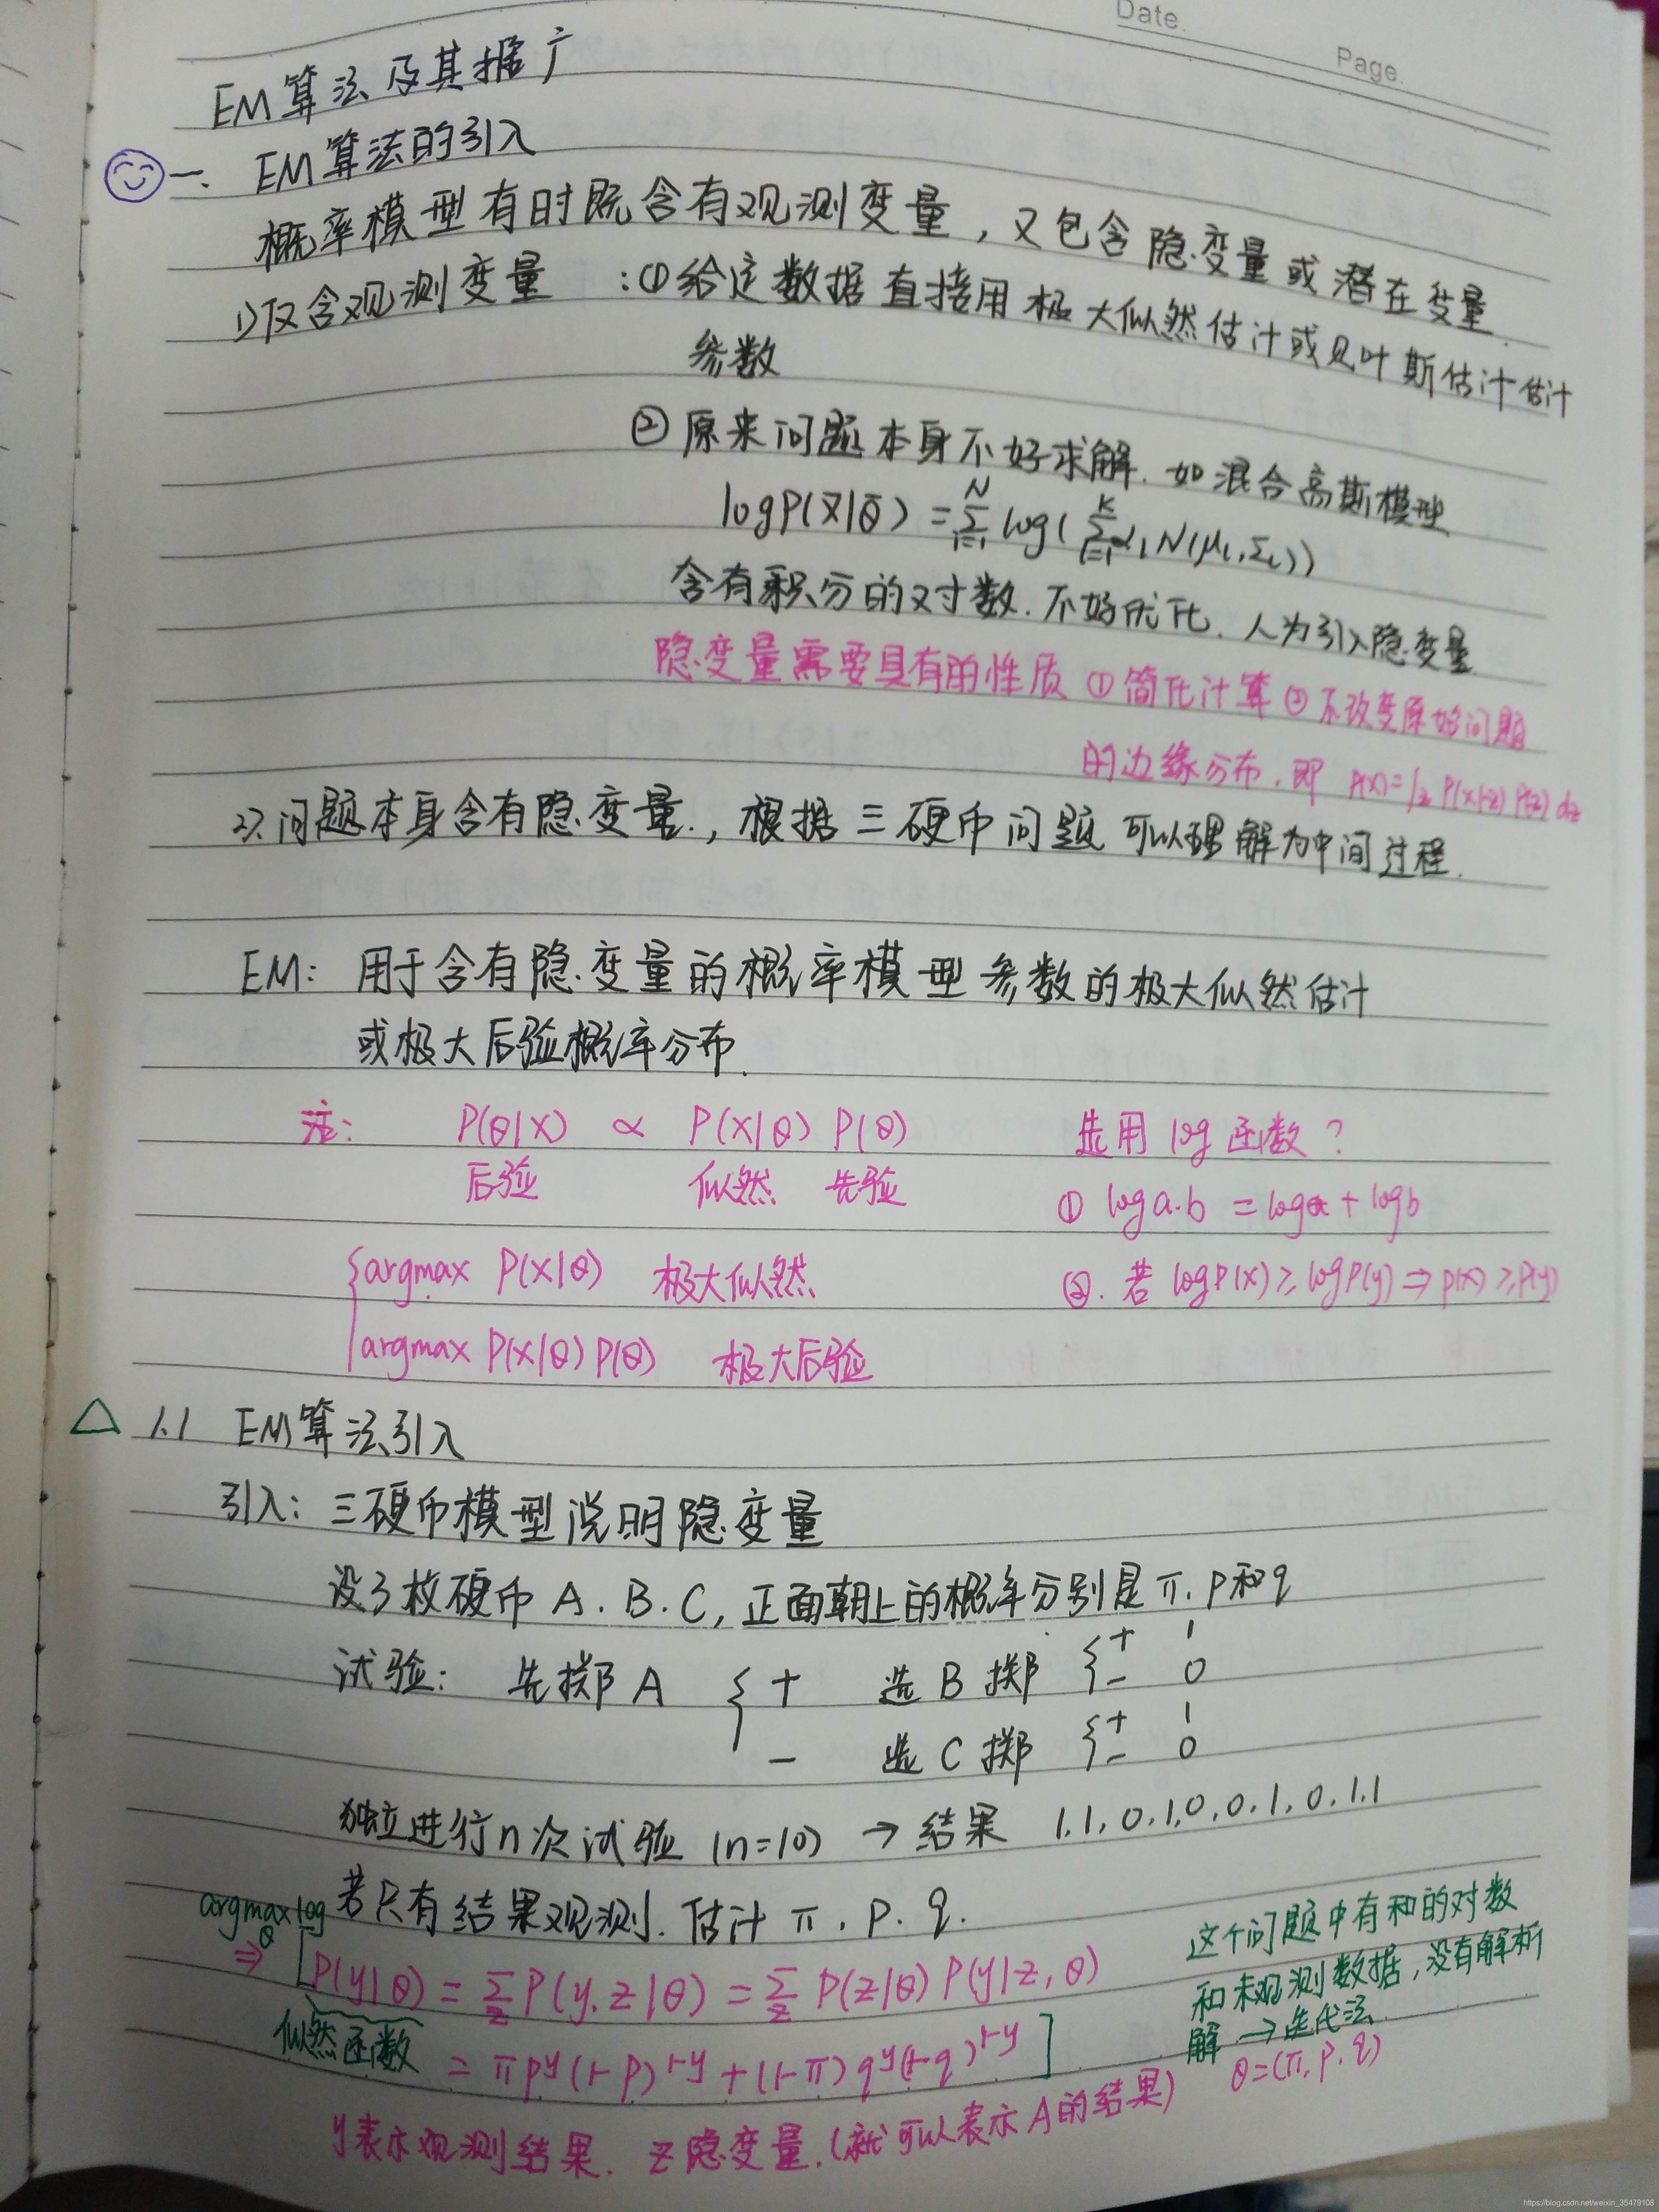 Date.
Page.
EM算法及其推广
一. EM算法的引入
概率模型有时既含有观测变量，又包含隐变量或潜在变量.
1)仅含观测变量 : ①给定数据直接用极大似然估计或贝叶斯估计估计
参数
② 原来问题本身不好求解. 如混合高斯模型
logP(X|θ) = Σ_{i=1}^{N} log( Σ_{l=1}^{K} α_l N(μ_l, Σ_l))
含有积分的对数. 不好优化. 人为引入隐变量
隐变量需要具有的性质 ①简化计算 ②不改变原始问题
的边缘分布. 即 P(x)=∫_z P(x|z) P(z) dz
2). 问题本身含有隐变量., 根据三硬币问题可以理解为中间过程.
EM: 用于含有隐变量的概率模型参数的极大似然估计
或极大后验概率分布.
注: P(θ|X) ∝ P(X|θ) P(θ) 选用 log 函数?
后验 似然 先验 ① log a.b = log a + log b
{argmax P(X|θ) 极大似然 ②. 若 logP(x) ≥ logP(y) ⇒ P(x) ≥ P(y)
argmax P(X|θ) P(θ) 极大后验
△ 1.1 EM算法引入
引入: 三硬币模型说明隐变量
设3枚硬币 A. B. C, 正面朝上的概率分别是 π. p和q
试验: 先掷A { + 选B掷 { + 1
- 0
- 选C掷 { + 1
- 0
独立进行n次试验 (n=10) → 结果 1.1,0,1,0,0,1,0,1.1
若只有结果观测. 估计 π. p. q.
argmax_θ log
⇒ [P(y|θ) = Σ_z P(y,z|θ) = Σ_z P(z|θ) P(y|z,θ)
似然函数 = π p^y (1-p)^{1-y} + (1-π) q^y (1-q)^{1-y} ]
这个问题中有和的对数
和未观测数据, 没有解析
解 → 迭代法
θ=(π, p, q)
y表示观测结果. z隐变量. (就可以表示A的结果)
https://blog.csdn.net/weixin_35479108